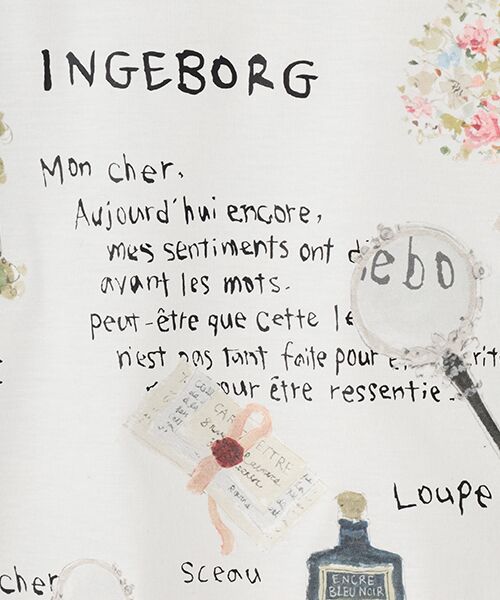 INGEBORG
Mon cher,
Aujourd'hui encore,
mes sentiments ont
avant les mots.
peut-être que cette
n'est pas tant faite pour
pour être ressentie.
ebo
CAR
Loupe
sceau
ENCRE
BLEU NOIR
cher